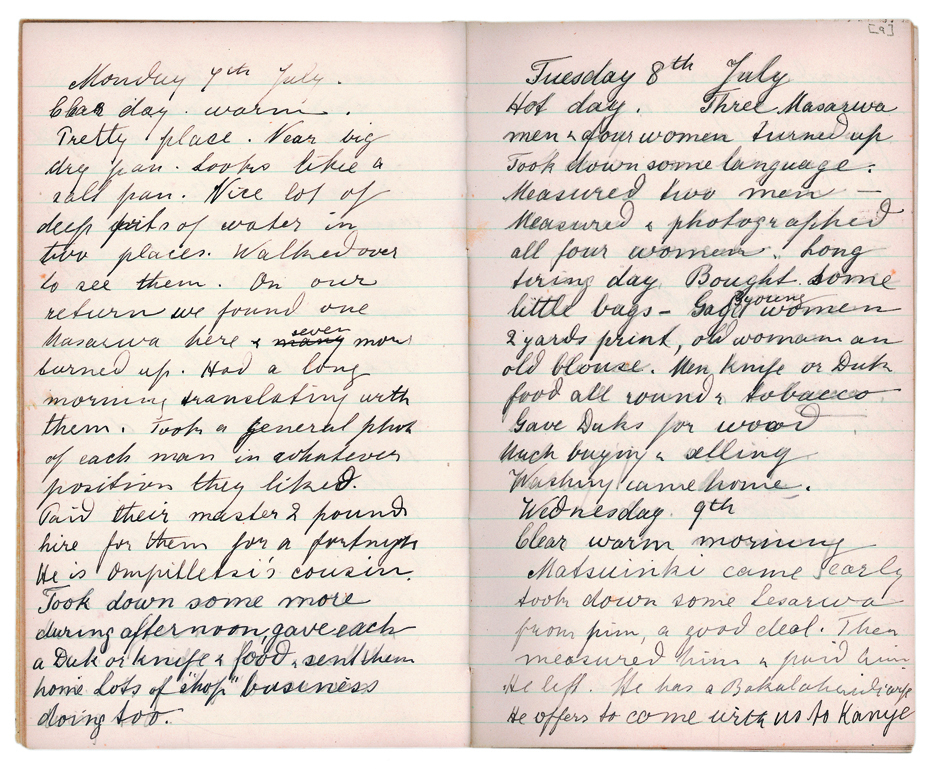 [9]
Monday 7th July.
Clear day. warm.
Pretty place. Near big
dry pan. Looks like a
salt pan. Nice lot of
deep pits of water in
two places. Walked over
to see them. On our
return we found one
Masarwa here & many seven more
turned up. Had a long
morning translating with
them. Took a general photo
of each man in whatever
position they liked.
Paid their master 2 pounds
hire for them for a fortnight
He is Ompilletsi's cousin.
Took down some more
during afternoon, gave each
a Duk or knife & food, sent them
home. Lots of "shop" business
doing too.
Tuesday 8th July
Hot day. Three Masarwa
men & four women turned up
Took down some language.
Measured two men —
Measured & photographed
all four women. Long
tiring day. Bought some
little bags - Gave 3 young women
2 yards print, old woman an
old blouse. Men knife or Duk
food all round & tobacco
Gave Duks for wood
Much buying & selling
Washing came home.
Wednesday 9th
Clear warm morning
Matsuinki came early
took down some Sesarwa
from him, a good deal. Then
measured him & paid him.
He left. He has a Bakalahardi wife
He offers to come with us to Kanye